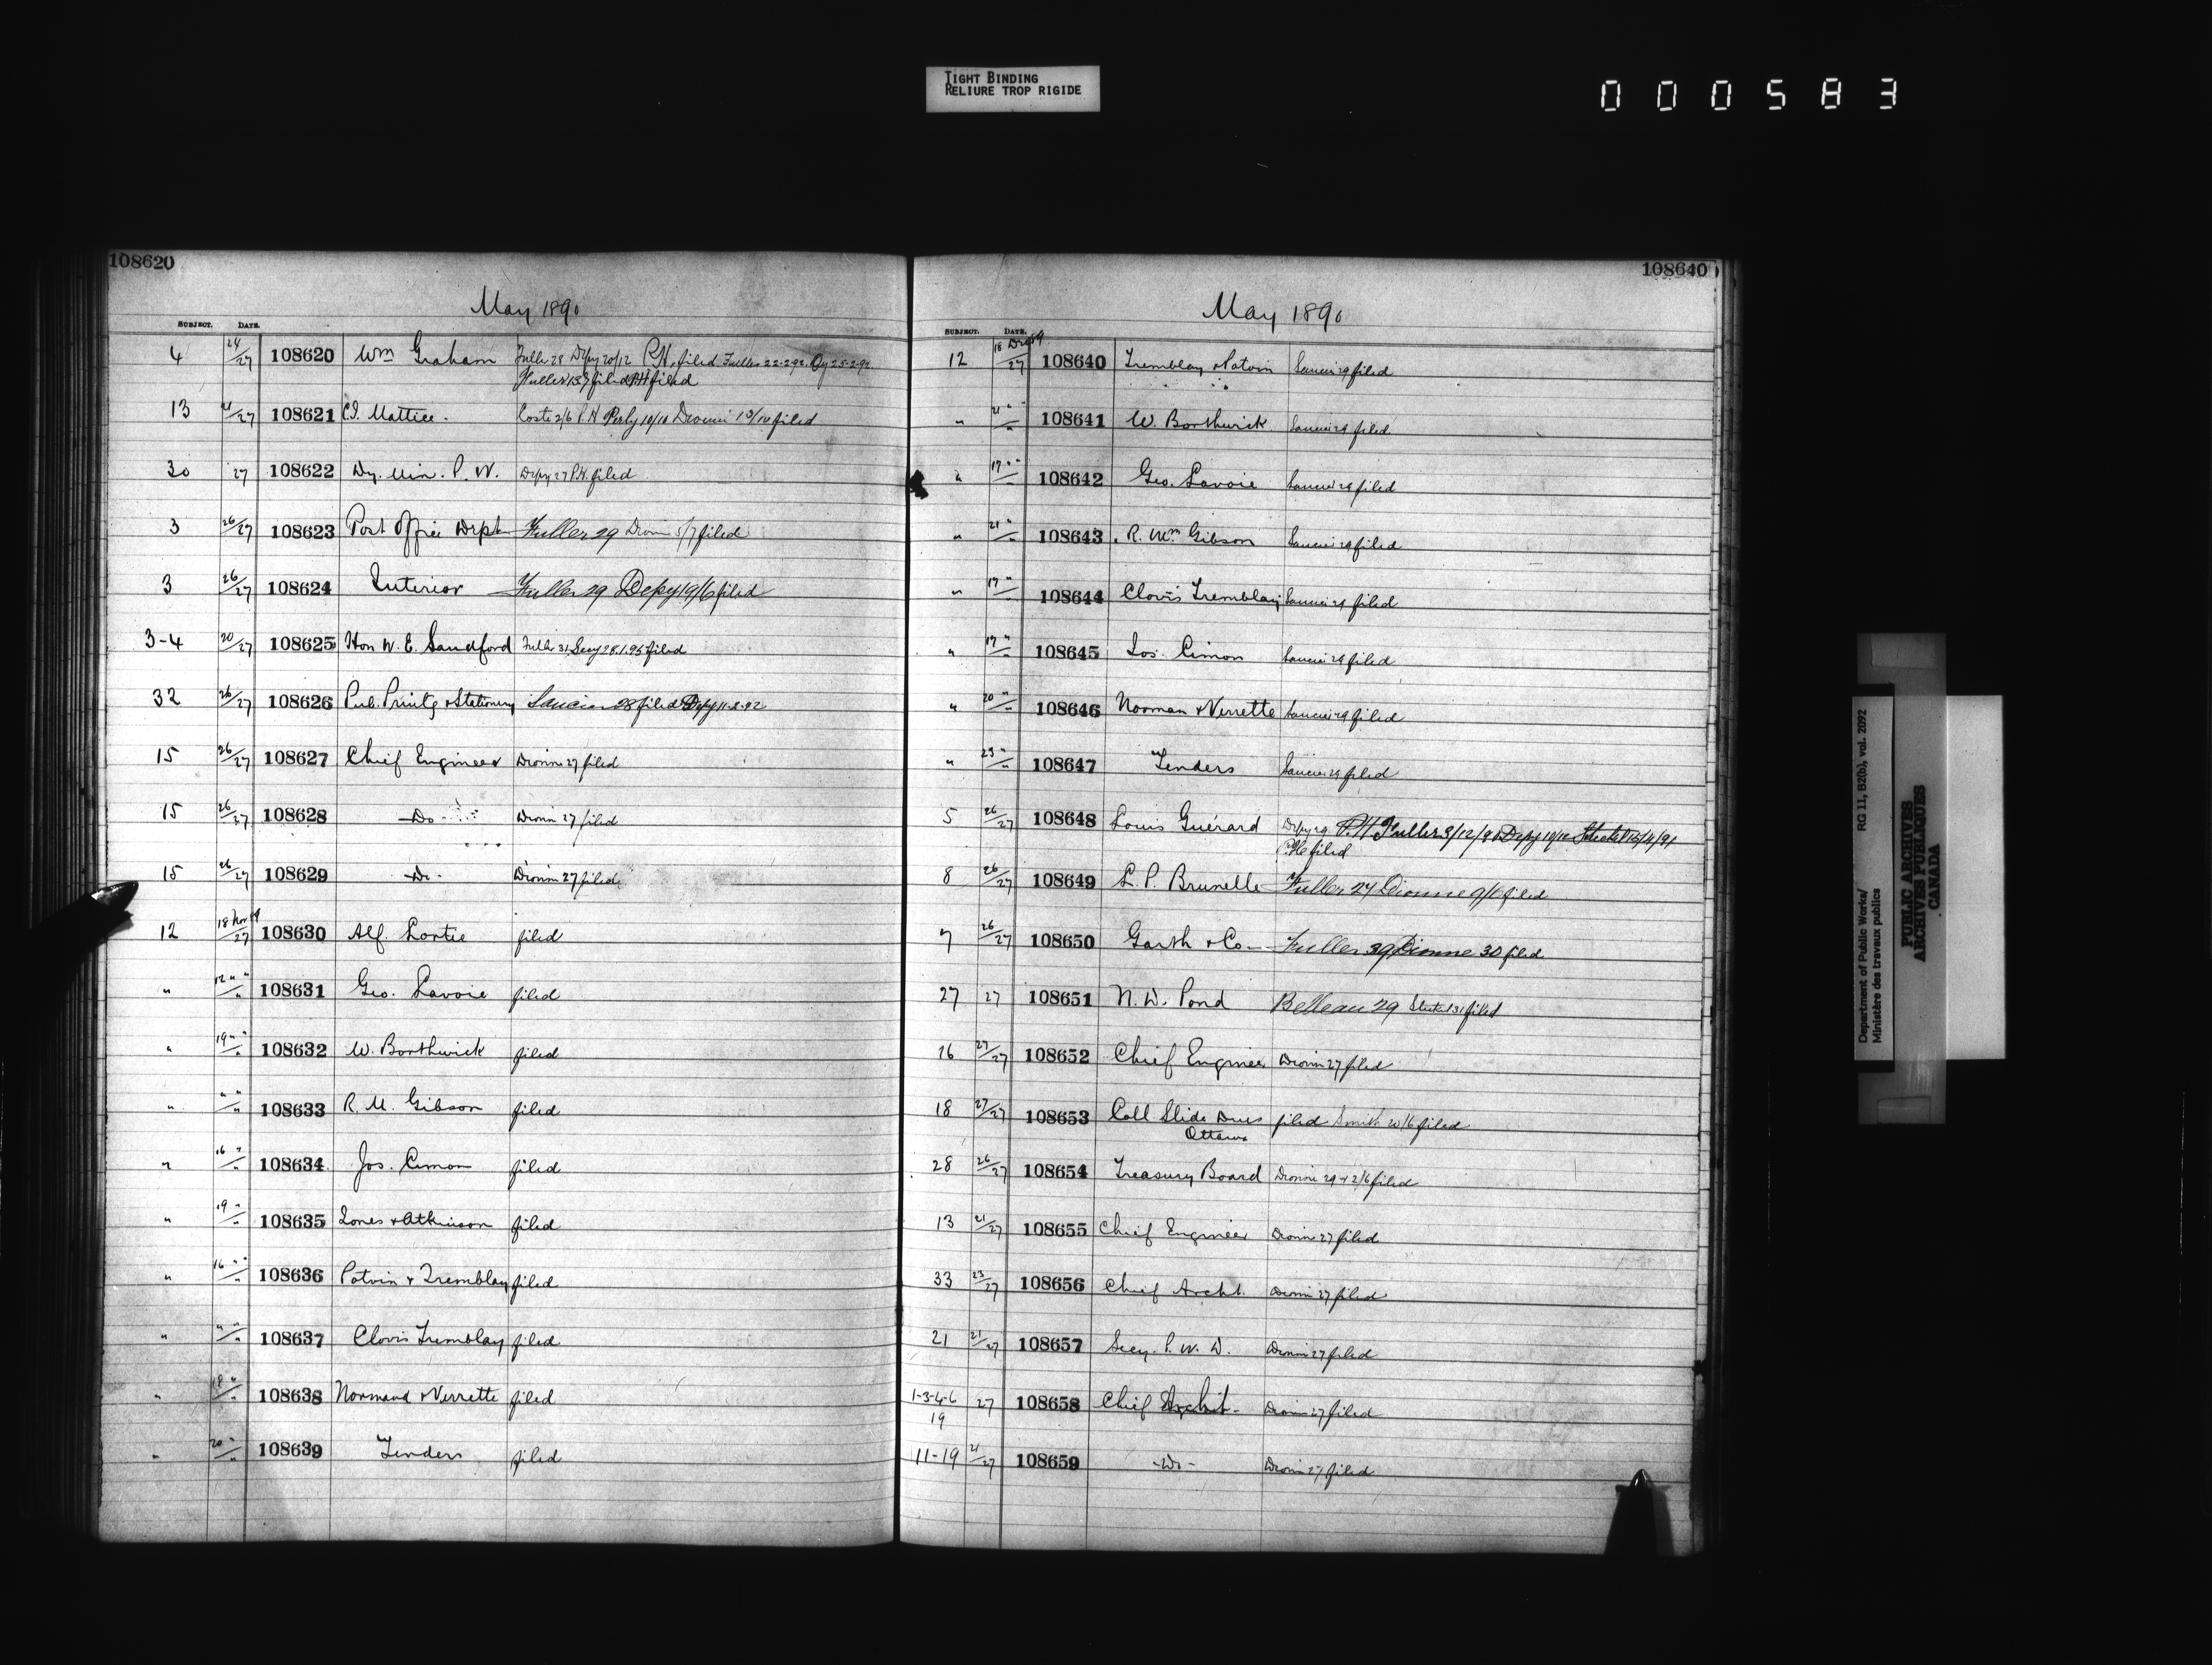 TIGHT BINDING
RELIURE TROP RIGIDE
000583
108620
May 1890
SUBJECT. DATE.
4 24/27 108620 Wm Graham Fuller 28 Depy 20/12 P.H. filed Fuller 22-2-92. Dy 25-2-92.
Fuller 13/7 filed PH filed
13 21/27 108621 C.D. Mattice. Coste 2/6 P.H. Perly 10/10 Dionne 13/10 filed
30 27 108622 Dy. Min. P. W. Depy 27 P.H. filed
3 26/27 108623 Post Office Dept Fuller 29 Dionne 5/7 filed
3 26/27 108624 Interior Fuller 29 Depy 19/6 filed
3-4 20/27 108625 Hon W. E. Sandford Fuller 31. Secy 28.1.95 filed
32 26/27 108626 Pub. Printg & Stationery Saucier 28 filed Depy 11-2-92
15 26/27 108627 Chief Engineer Dionne 27 filed
15 26/27 108628 -Do- Dionne 27 filed
15 26/27 108629 -Do- Dionne 27 filed
12 18 Nov 89/27 108630 Alf. Lortie filed
" 12 " "/" 108631 Geo. Lavoie filed
" 19 " "/" 108632 W. Borthwick filed
" " "/" 108633 R. M. Gibson filed
" 16 "/" 108634 Jos. Cimon filed
" 19 "/" 108635 Jones & Atkinson filed
" 16 " "/" 108636 Potvin & Tremblay filed
" " "/" 108637 Clovis Tremblay filed
" 18 "/" 108638 Normand & Verrette filed
" 20 "/" 108639 Tenders filed
108640
May 1890
SUBJECT. DATE.
12 18 Dec 89/27 108640 Tremblay & Potvin Saucier 29 filed
" 21 " "/" 108641 W. Borthwick Saucier 29 filed
" 17 " " 108642 Geo. Lavoie Saucier 29 filed
" 21 "/" 108643 R. Wm Gibson Saucier 29 filed
" 17 "/" 108644 Clovis Tremblay Saucier 29 filed
" 17 "/" 108645 Jos. Cimon Saucier 29 filed
" 20 "/" 108646 Norman & Verrette Saucier 29 filed
" 23 "/" 108647 Tenders Saucier 29 filed
5 26/27 108648 Louis Guérard Depy 29 P.H Fuller 9/12/90 Depy 10/12 Steckel 15/4/91
P.H. filed
8 26/27 108649 L. P. Brunelle Fuller 27 Dionne 9/6 filed
7 26/27 108650 Garth & Co Fuller 29 Dionne 30 filed
27 27 108651 N. W. Pond Belleau 29 Steckel 31 filed
16 27/27 108652 Chief Engineer Dionne 27 filed
18 27/27 108653 Coll Slide Dues filed Smith 20/6 filed
Ottawa
28 26/27 108654 Treasury Board Dionne 29 + 2/6 filed
13 21/27 108655 Chief Engineer Dionne 27 filed
33 23/27 108656 Chief Archt. Dionne 27 filed
21 21/27 108657 Secy. P. W. D. Dionne 27 filed
1-3-4-6 27 108658 Chief Archit- Dionne 27 filed
19
11-19 21/27 108659 -Do- Dionne 27 filed
Department of Public Works/ RG 11, B2(b), vol. 2092
Ministère des travaux publics
PUBLIC ARCHIVES
ARCHIVES PUBLIQUES
CANADA